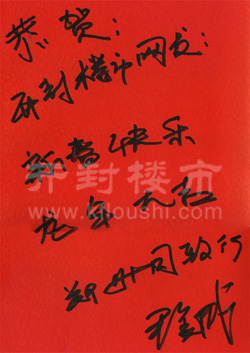 恭贺：
开封楼市网友：
新春快乐
开封楼市
www.kfloushi.com
龙年大吉
郑州同致行